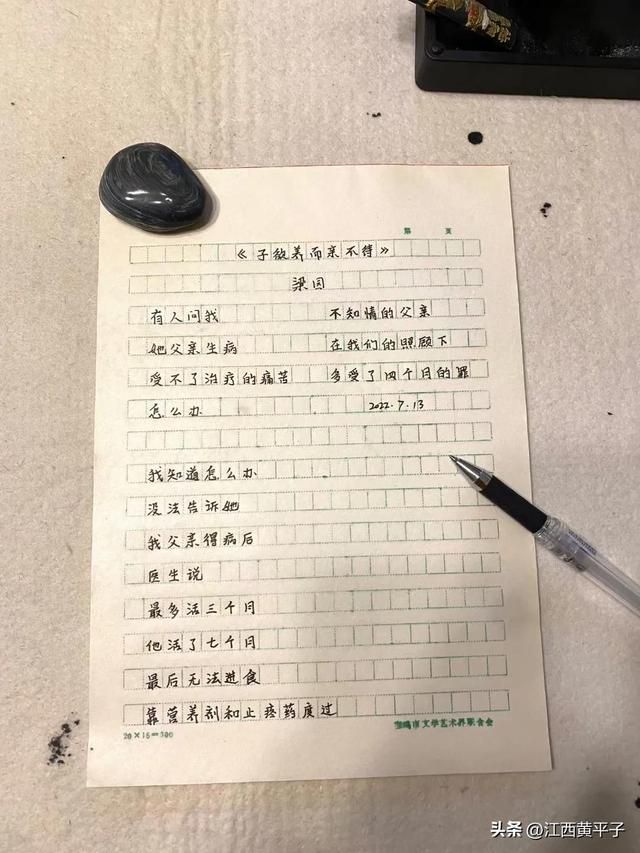 第 页
《子欲养而亲不待》
梁园
有人问我
她父亲生病
受不了治疗的痛苦
怎么办
我知道怎么办
没法告诉她
我父亲得病后
医生说
最多活三个月
他活了七个月
最后无法进食
靠营养剂和止疼药度过
不知情的父亲
在我们的照顾下
多受了四个月的罪
2022.7.13
20×15=300
宝鸡市文学艺术界联合会
头条 @江西黄平子